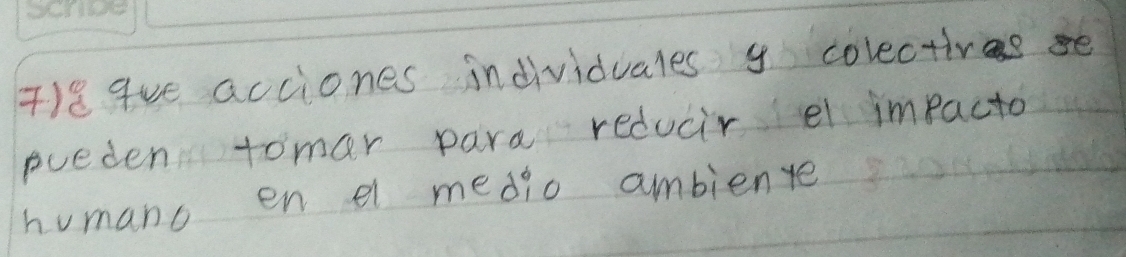 Scribe
7)¿ que acciones individuales y colectivas se
pueden tomar para reducir el impacto
humano en el medio ambiente